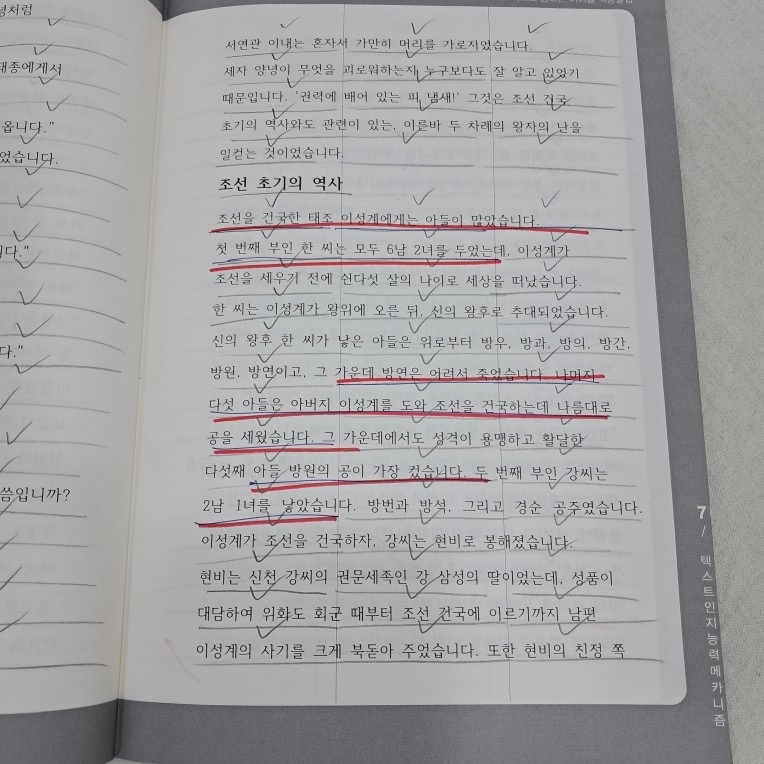 령처럼
태종에게서
옵니다."
었습니다.
니다."
다."
씀입니까?
서연관 이내는 혼자서 가만히 머리를 가로저었습니다.
세자 양녕이 무엇을 괴로워하는지 누구보다도 잘 알고 있었기
때문입니다. '권력에 배어 있는 피 냄새!' 그것은 조선 건국
초기의 역사와도 관련이 있는, 이른바 두 차례의 왕자의 난을
일컫는 것이었습니다.
조선 초기의 역사
조선을 건국한 태조 이성계에게는 아들이 많았습니다.
첫 번째 부인 한 씨는 모두 6남 2녀를 두었는데, 이성계가
조선을 세우기 전에 쉰다섯 살의 나이로 세상을 떠났습니다.
한 씨는 이성계가 왕위에 오른 뒤, 신의 왕후로 추대되었습니다.
신의 왕후 한 씨가 낳은 아들은 위로부터 방우, 방과, 방의, 방간,
방원, 방연이고, 그 가운데 방연은 어려서 죽었습니다. 나머지
다섯 아들은 아버지 이성계를 도와 조선을 건국하는데 나름대로
공을 세웠습니다. 그 가운데에서도 성격이 용맹하고 활달한
다섯째 아들 방원의 공이 가장 컸습니다. 두 번째 부인 강씨는
2남 1녀를 낳았습니다. 방번과 방석, 그리고 경순 공주였습니다.
이성계가 조선을 건국하자, 강씨는 현비로 봉해졌습니다.
현비는 신천 강씨의 권문세족인 강 삼성의 딸이었는데, 성품이
대담하여 위화도 회군 때부터 조선 건국에 이르기까지 남편
이성계의 사기를 크게 북돋아 주었습니다. 또한 현비의 친정 쪽
7
/
텍스트인지능력메카니즘